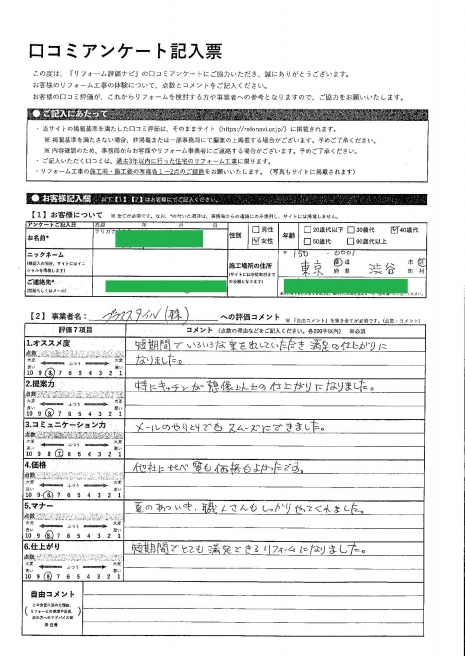 口コミアンケート記入票
この度は、『リフォーム評価ナビ』の口コミアンケートにご協力いただき、誠にありがとうございます。
お客様のリフォーム工事の体験について、点数とコメントをご記入ください。
お客様の口コミ評価が、これからリフォームを検討する方や事業者への参考となりますので、ご協力をお願いいたします。
● ご記入にあたって
・当サイトの掲載基準を満たした口コミ評価は、そのままサイト(https://refonavi.or.jp/)に掲載されます。
※ 掲載基準を満たさない場合、非掲載または一部事務局にて編集の上掲載する場合がございます。予めご了承ください。
※ 内容確認のため、事務局からお客様やリフォーム事業者にご連絡する場合がございます。予めご了承ください。
・ご記入いただく口コミは、過去3年以内に行った住宅のリフォーム工事に限ります。
・リフォーム工事の施工前・施工後の写真各1~2点のご提供をお願いいたします。(写真もサイトに掲載されます)
● お客様記入欄 以下【1】【2】はお客様にてご記入ください。
【1】お客様について
アンケートご記入日 西暦 年 月 日
お名前* フリガナ
性別 □ 男性 ☑ 女性
年齢 □ 20歳代以下 □ 30歳代 ☑ 40歳代
□ 50歳代 □ 60歳代以上
ニックネーム
施工場所の住所
〒150-0001
東京 都 道 府 県 渋谷 市 区 町 村
ご連絡先*
【2】事業者名: プラスタイル(株) への評価コメント
評価7項目 コメント (点数の理由などをご記入ください。各200字以内) ※必須
1.オススメ度
点数
大変良い ふつう 大変悪い
10 9 8 7 6 5 4 3 2 1
短期間でいろいろな案を出していただき満足の仕上がりに
なりました。
2.提案力
点数
大変良い ふつう 大変悪い
10 9 8 7 6 5 4 3 2 1
特にキッチンが想像以上の仕上がりになりました。
3.コミュニケーション力
点数
大変良い ふつう 大変悪い
10 9 8 7 6 5 4 3 2 1
メールのやりとりでもスムーズにできました。
4.価格
点数
大変良い ふつう 大変悪い
10 9 8 7 6 5 4 3 2 1
他社に比べ質も価格もよかったです。
5.マナー
点数
大変良い ふつう 大変悪い
10 9 8 7 6 5 4 3 2 1
夏のあつい中、職人さんもしっかりやってくれました。
6.仕上がり
点数
大変良い ふつう 大変悪い
10 9 8 7 6 5 4 3 2 1
短期間でとても満足できるリフォームになりました。
自由コメント